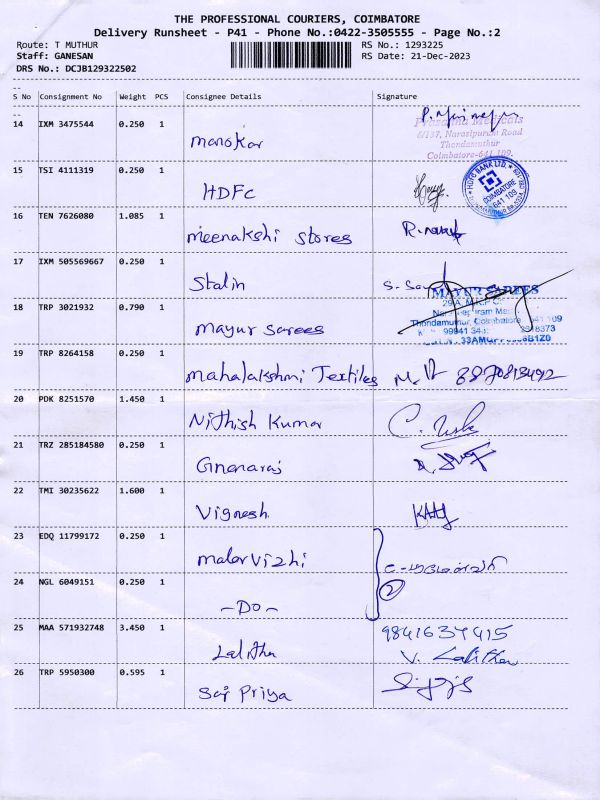 THE PROFESSIONAL COURIERS, COIMBATORE
Delivery Runsheet - P41 - Phone No.:0422-3505555 - Page No.:2
Route: T MUTHUR RS No.: 1293225
Staff: GANESAN RS Date: 21-Dec-2023
DRS No.: DCJB129322502
S No Consignment No Weight PCS Consignee Details Signature
14 IXM 3475544 0.250 1 Manokar
Medicals
6/137, Narasipuram Road
Thondamuthur
Coimbatore-641 109.
15 TSI 4111319 0.250 1 HDFC
HDFC BANK LTD.
COIMBATORE
641 109
16 TEN 7626080 1.085 1 Meenakshi Stores
17 IXM 505569667 0.250 1 Stalin
18 TRP 3021932 0.790 1 Mayur Sarees
MAYUR SAREES
Thondamuthur, Coimbatore - 641 109
19 TRP 8264158 0.250 1 Mahalakshmi Textiles
20 PDK 8251570 1.450 1 Nithish Kumar
21 TRZ 285184580 0.250 1 Gnanaraj
22 TMI 30235622 1.600 1 Vignesh
23 EDQ 11799172 0.250 1 Malarvizhi
24 NGL 6049151 0.250 1 -Do- 2
25 MAA 571932748 3.450 1 Lalitha 9841637415
V. Lalitha
26 TRP 5950300 0.595 1 Sai Priya